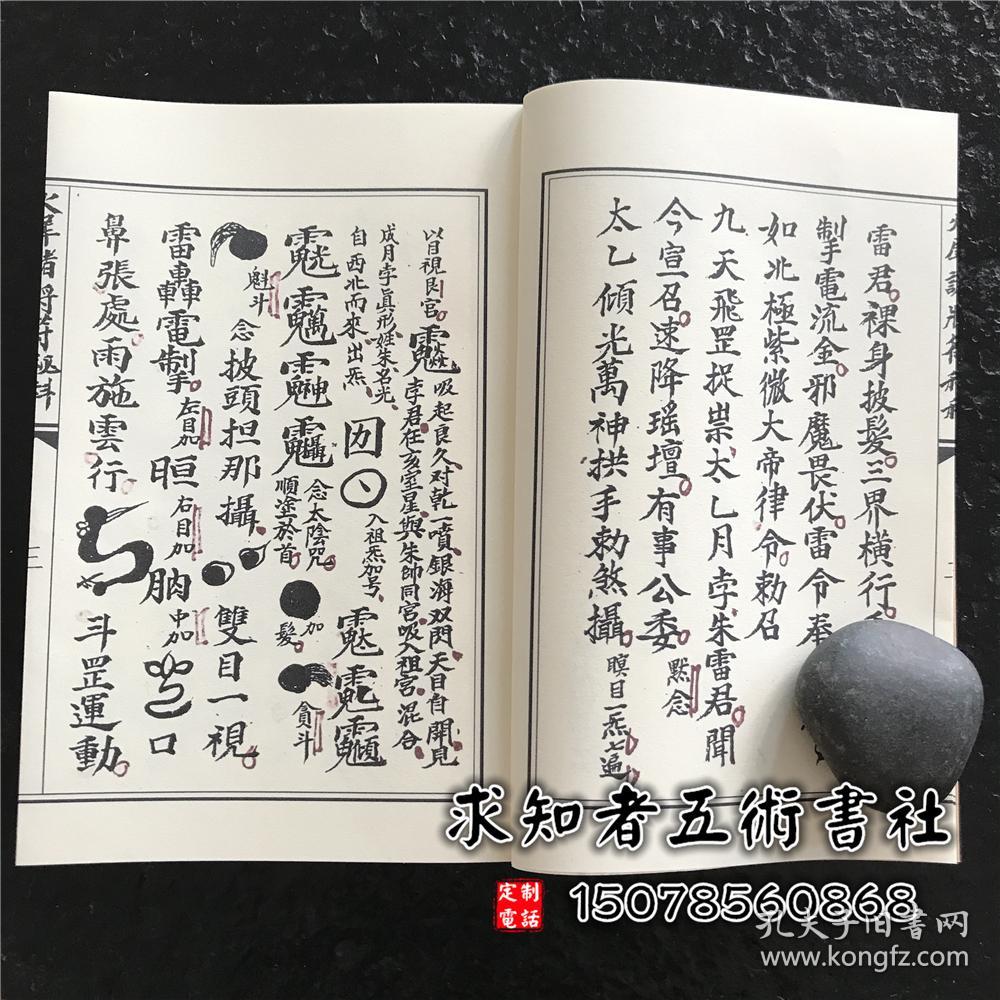 雷君。裸身披髮。三界橫行。
掣電流金。邪魔畏伏。雷令奉
如北極紫微大帝律令。勅召
九天飛罡捉祟、太乙月孛、朱雷君。聞
今宣召。速降瑶壇。有事公委。默念
太乙傾光萬神拱手勅煞攝。瞑目一炁七遍。
以目視艮宮。吸起良久对乾一噴、銀海双閃天目自開見
戌月孛真形姓朱、名光、孛君在亥室星與朱帥同宮吸入祖宮、混合
自西北而來出炁、入祖炁加号、
念太陰咒。順塗於首。加髮。貪斗
魁斗念披頭担那攝。雙目一視。
雷轟電掣。左目加晅右目加肭中加口
鼻張處。雨施雲行。斗罡運動。
三
求知者五術書社
定制電話
15078560868
孔夫子旧书网
www.kongfz.com